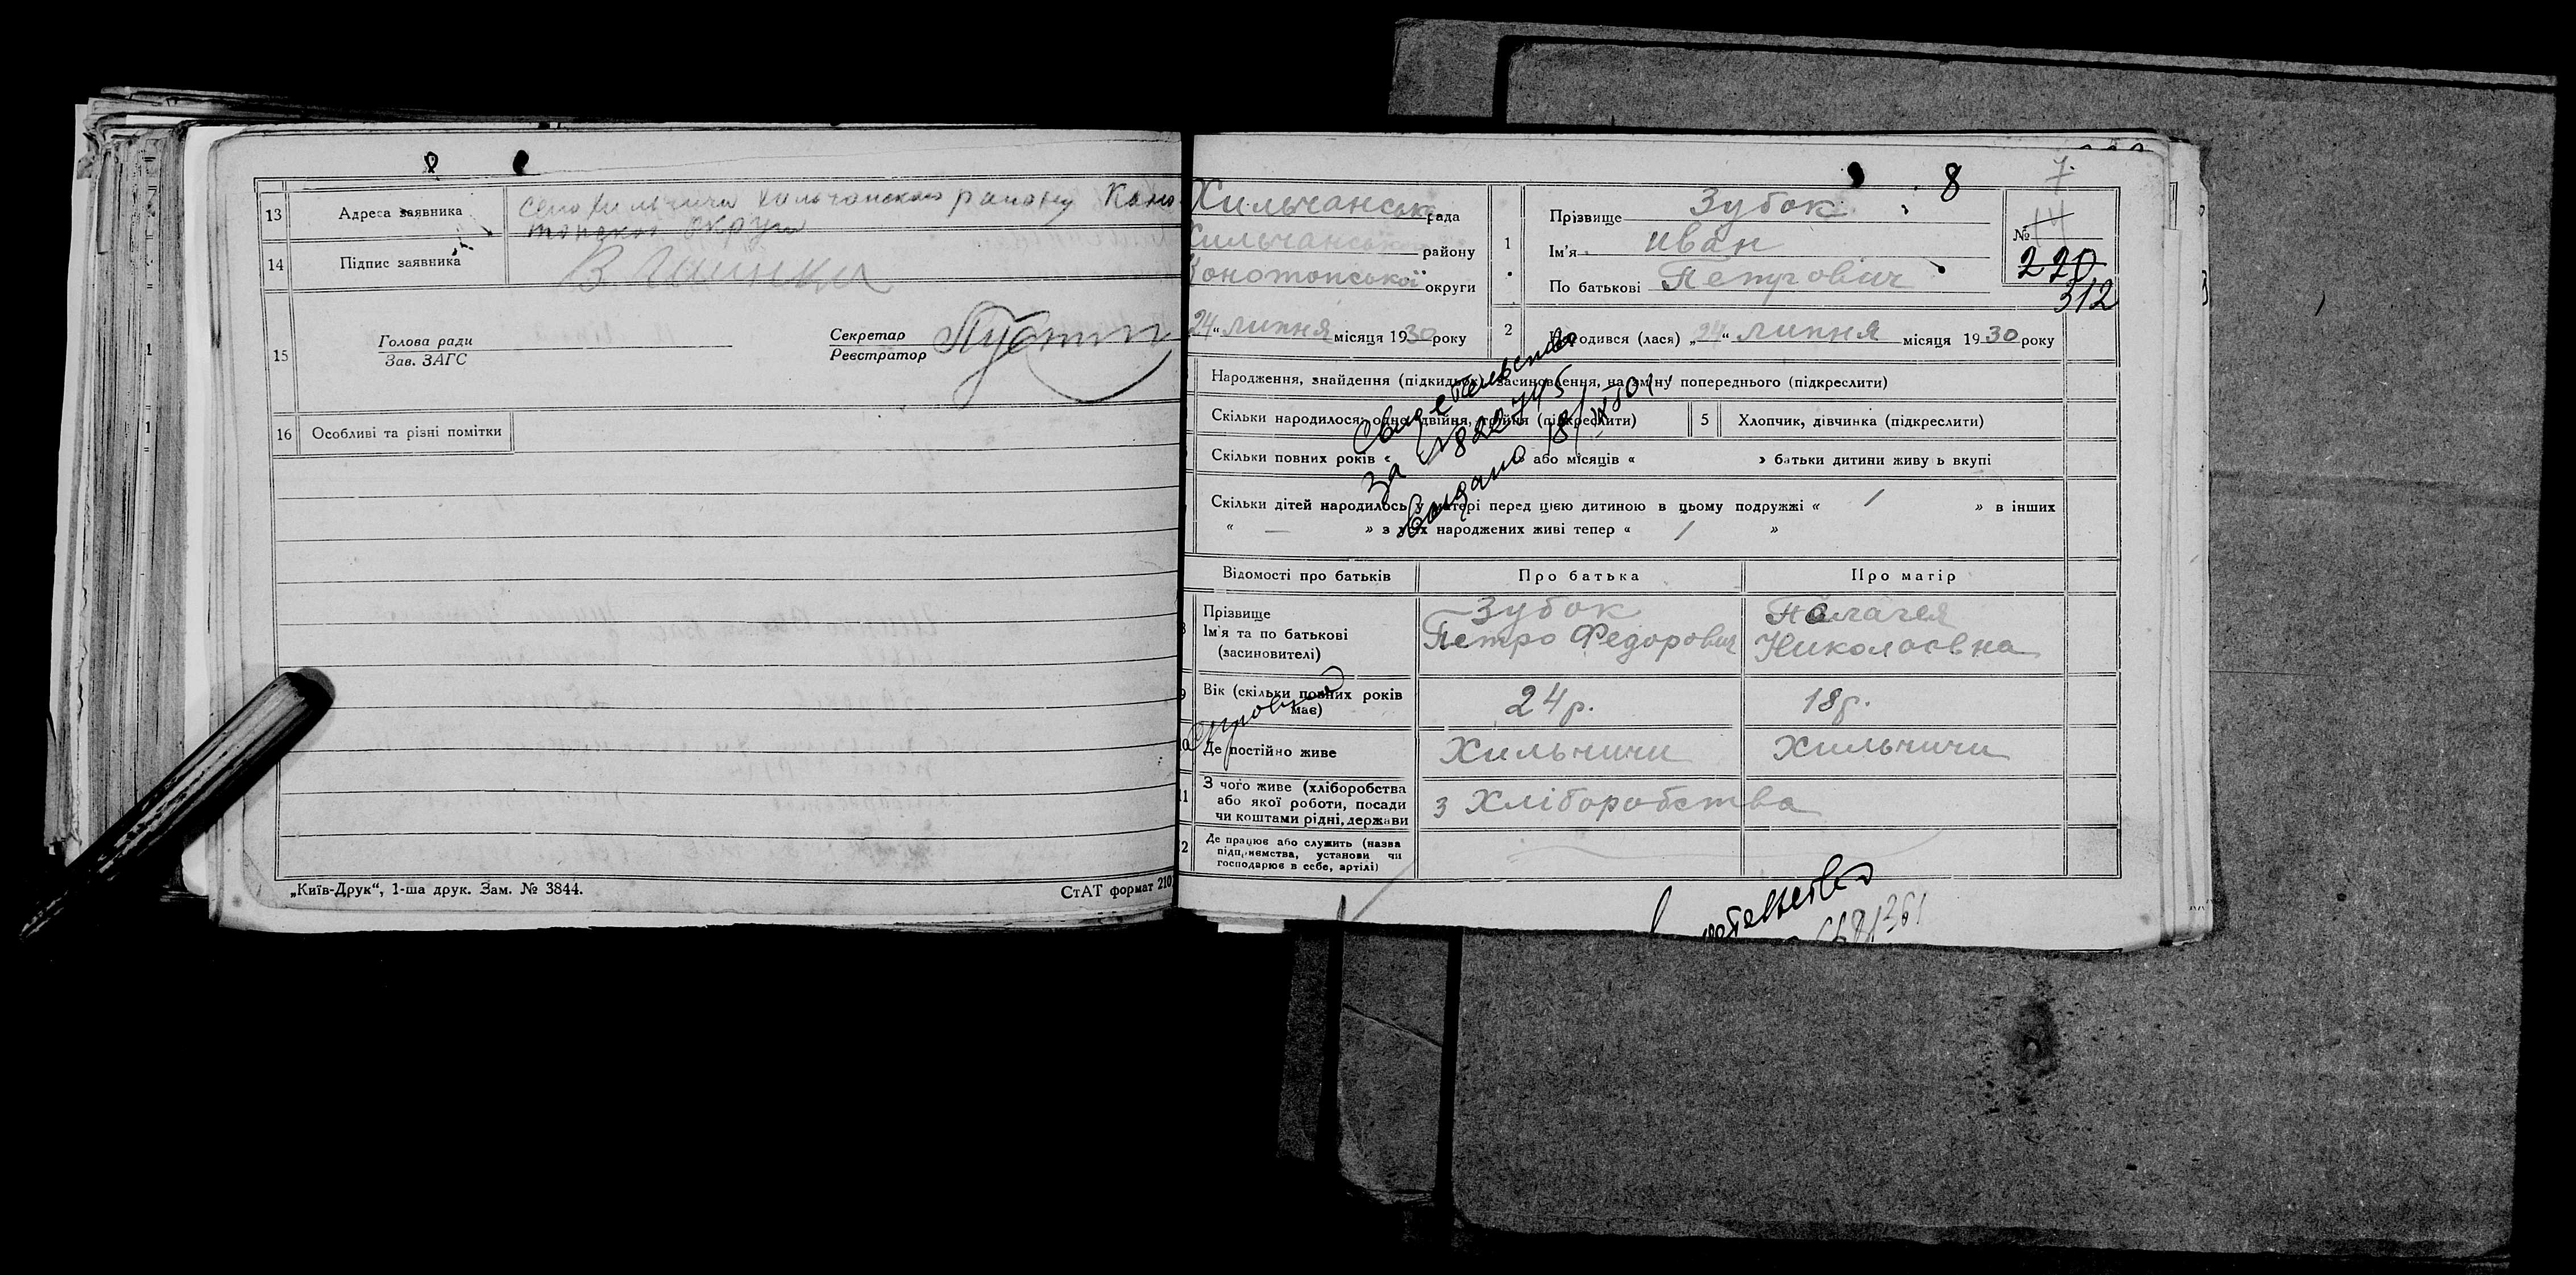 8
13 Адреса заявника село Хильчичи Хильчанского району Коно
топской округи
14 Підпис заявника
15 Голова ради
Зав. ЗАГС
Секретар
Реєстратор
16 Особливі та різні помітки
„Київ-Друк“, 1-ша друк. Зам. № 3844.
СтАТ формат 210
8 7
Хильчанськ рада
Хильчанського району
Конотопської округи
24 “ липня місяця 1930 року
1 Прізвище Зубок
Ім'я Иван
По батькові Петрович
№ 14
220
312
2 Народився (лася) „24“ липня місяця 1930 року
Народження, знайдення (підкидьок) засиновлення, на зміну попереднього (підкреслити)
Скільки народилося: одно, двійня, трійня (підкреслити) 5 Хлопчик, дівчинка (підкреслити)
Скільки повних років « » або місяців « » батьки дитини живуть вкупі
Скільки дітей народилось у матері перед цією дитиною в цьому подружжі « / » в інших
« — » з усіх народжених живі тепер « / »
Свидетельство
за
Выдано 18/
Відомості про батьків Про батька Про матір
Прізвище
Ім'я та по батькові
(засиновителі)
Зубок
Петро Федорович
Палагея
Николаевна
9 Вік (скільки повних років
має)
24 р. 18 р.
10 Де постійно живе Хильчичи Хильчичи
11 З чого живе (хліборобства
або якої роботи, посади
чи коштами рідні, держави
з Хліборобства
12 Де працює або служить (назва
підприємства, установи чи
господарює в себе, артілі)